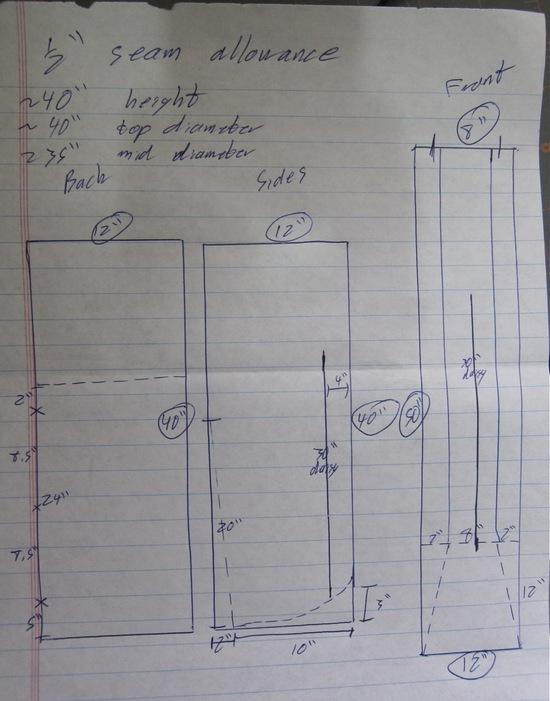 ½" seam allowance
~40" height
~40" top diameter
~35" mid diameter
Back
Sides
Front
12"
12"
8"
2"
4"
40"
40"
50"
24"
20"
2" 8" 2"
5"
3"
12"
2"
10"
12"